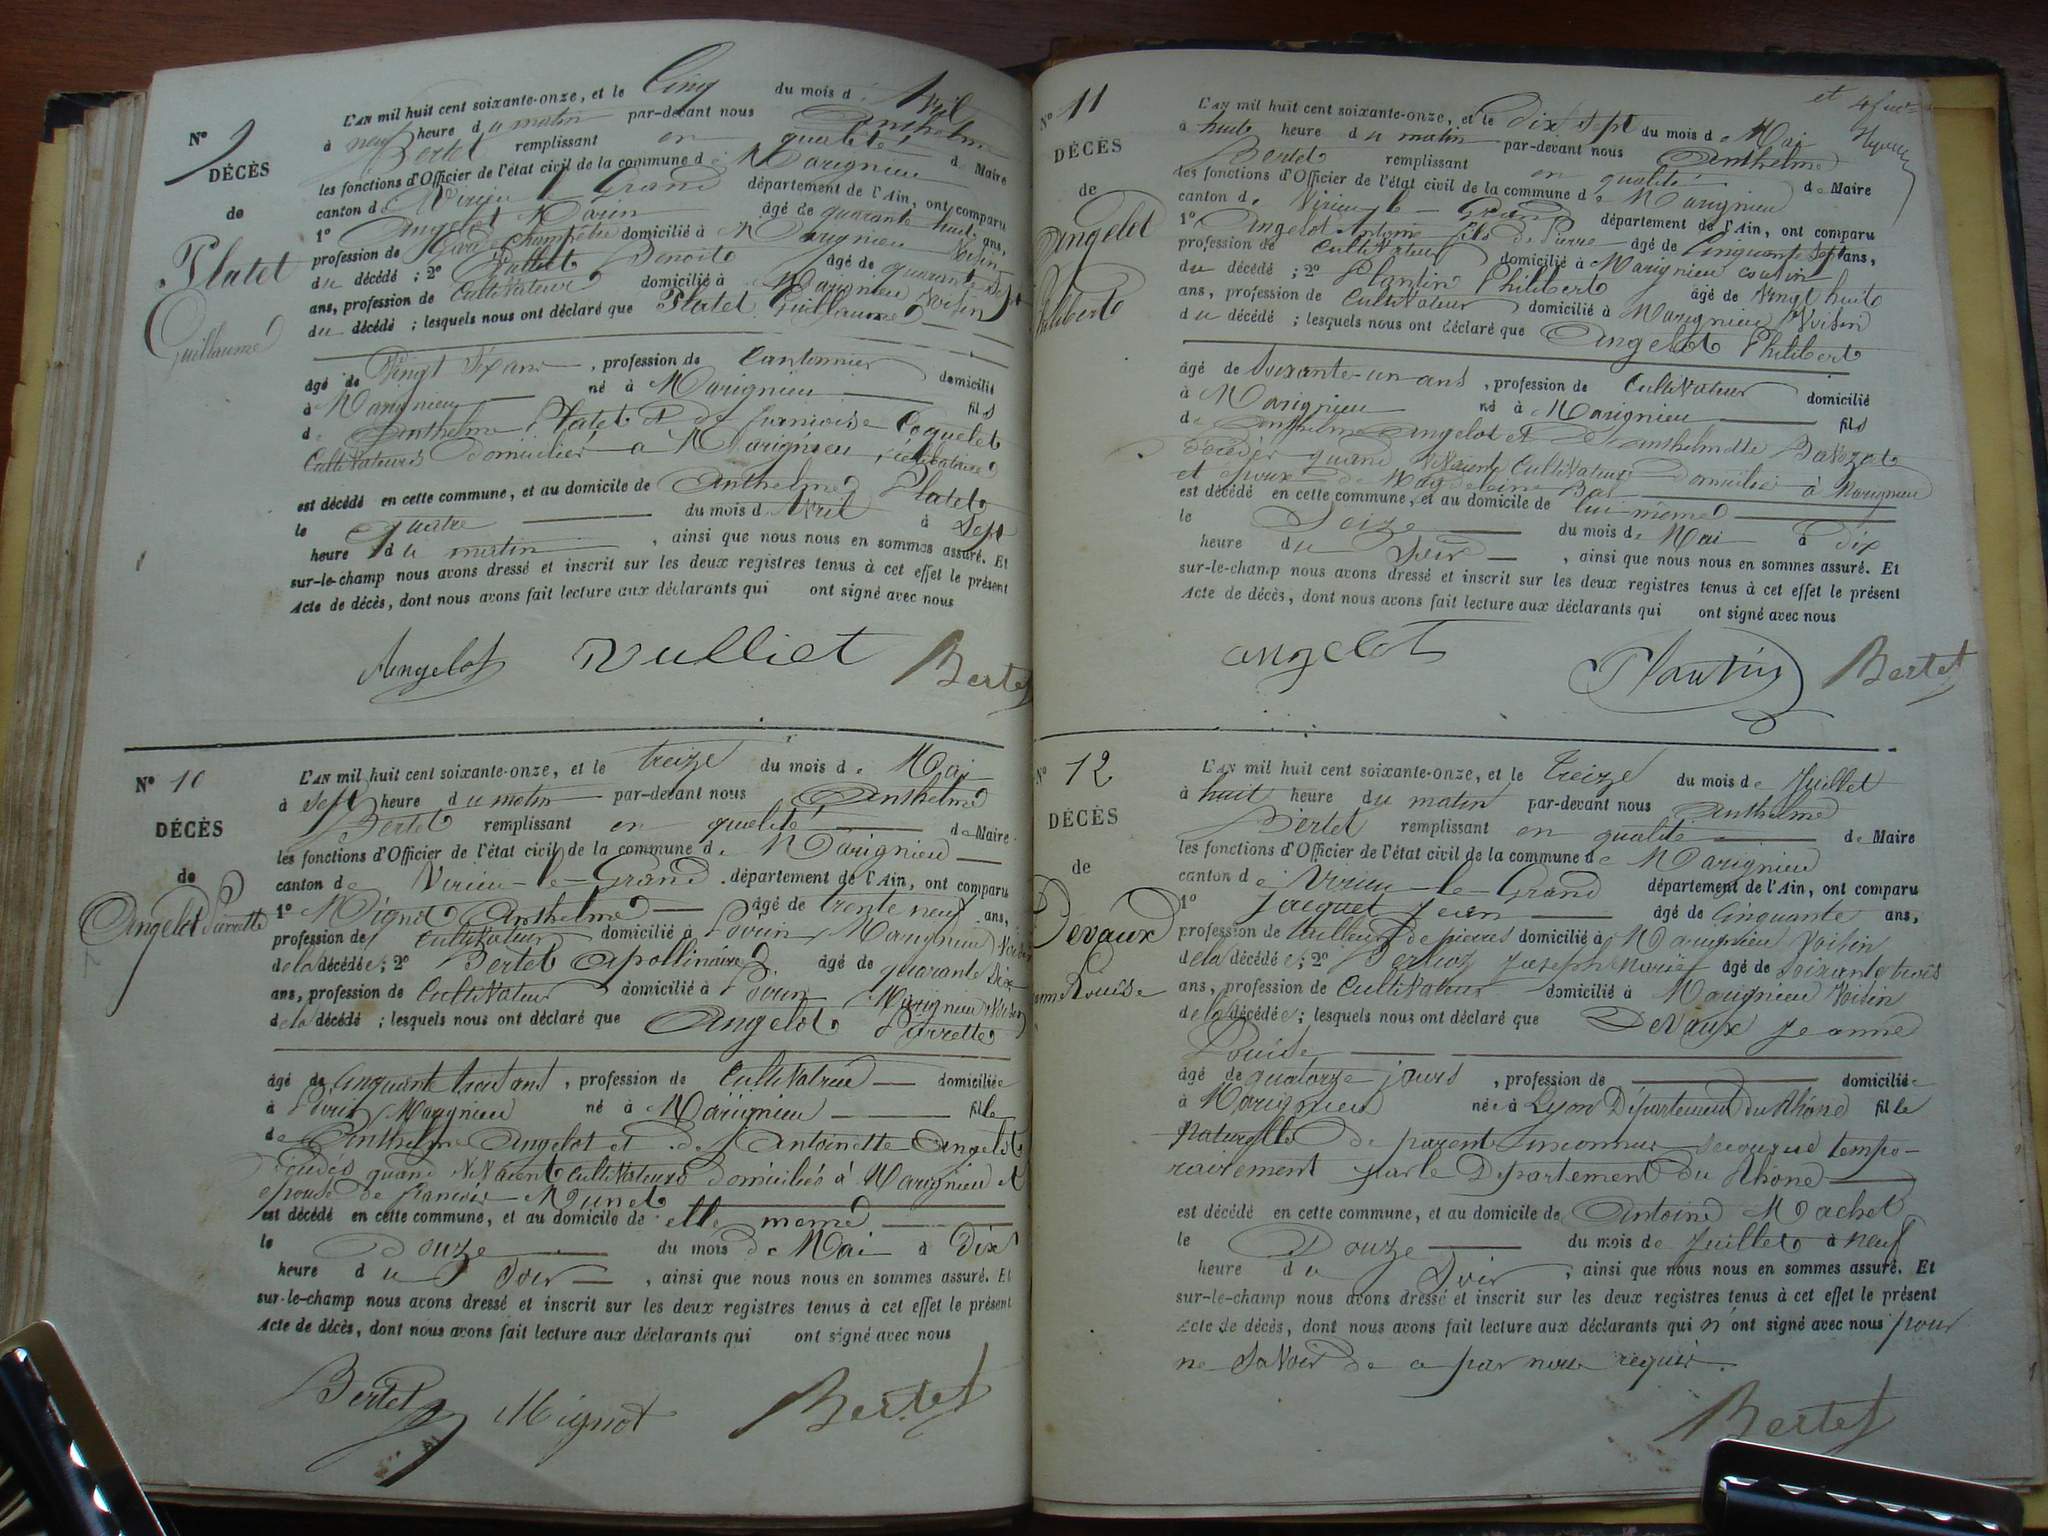 N° 9
DÉCÈS
de
Platet
Guillaume
L'AN mil huit cent soixante-onze, et le Cinq du mois d'Avril
à neuf heure du matin par-devant nous Anthelme
Bertet remplissant en qualité de Maire
les fonctions d'Officier de l'état civil de la commune de Marignieu
canton de Virieu le Grand département de l'Ain, ont comparu
1° Angelot Marin âgé de quarante huit ans,
profession de Garde Champêtre domicilié à Marignieu Voisin
du décédé ; 2° Benoit âgé de quarante sept
ans, profession de Cultivateur domicilié à Marignieu Voisin
du décédé ; lesquels nous ont déclaré que Platet Guillaume
âgé de Vingt Six ans, profession de Cantonnier domicilié
à Marignieu né à Marignieu fils
de Anthelme Platet et de françoise Coquelet
Cultivateurs domicilié à Marignieu, célibataire
est décédé en cette commune, et au domicile de Anthelme Platet
le quatre du mois d'Avril à Sept
heure du matin, ainsi que nous nous en sommes assuré. Et
sur-le-champ nous avons dressé et inscrit sur les deux registres tenus à cet effet le présent
Acte de décès, dont nous avons fait lecture aux déclarants qui ont signé avec nous
Angelot Vulliet Bertet
N° 10
DÉCÈS
de
Angelot Pierrette
L'AN mil huit cent soixante-onze, et le treize du mois de Mai
à Sept heure du matin par-devant nous Anthelme
Bertet remplissant en qualité de Maire
les fonctions d'Officier de l'état civil de la commune de Marignieu
canton de Virieu-le-Grand département de l'Ain, ont comparu
1° Mignot Anthelme âgé de trente neuf ans,
profession de Cultivateur domicilié à Marignieu Voisin
de la décédée ; 2° Bertet Apollinaire âgé de quarante Dix
ans, profession de Cultivateur domicilié à Marignieu Voisin
de la décédé ; lesquels nous ont déclaré que Angelot Pierrette
âgé de Cinquante trois ans, profession de Cultivatrice domiciliée
à Marignieu né à Marignieu fille
de Anthelme Angelot et de Antoinette Angelot
Décédés quand Vivaient Cultivateurs domiciliés à Marignieu et
épouse de François Munet
est décédé en cette commune, et au domicile de elle meme
le Douze du mois de Mai à Dix
heure du Soir, ainsi que nous nous en sommes assuré. Et
sur-le-champ nous avons dressé et inscrit sur les deux registres tenus à cet effet le présent
Acte de décès, dont nous avons fait lecture aux déclarants qui ont signé avec nous
Bertet Mignot Bertet
N° 11
DÉCÈS
de
Angelot
Philibert
L'AN mil huit cent soixante-onze, et le dix sept du mois de Mai
à huit heure du matin par-devant nous Anthelme
Bertet remplissant en qualité de Maire
les fonctions d'Officier de l'état civil de la commune de Marignieu
canton de Virieu-le-Grand département de l'Ain, ont comparu
1° Angelot Antoine fils de Pierre âgé de Cinquante Sept ans,
profession de Cultivateur domicilié à Marignieu cousin
du décédé ; 2° Plantin Philibert âgé de Vingt huit
ans, profession de Cultivateur domicilié à Marignieu Voisin
du décédé ; lesquels nous ont déclaré que Angelot Philibert
âgé de Soixante-un ans, profession de Cultivateur domicilié
à Marignieu né à Marignieu fils
de Anthelme Angelot et De Anthelmette
quand Vivaient Cultivateurs domiciliés à Marignieu
et époux de Magdeleine
est décédé en cette commune, et au domicile de lui-même
le Seize du mois de Mai à dix
heure du Soir, ainsi que nous nous en sommes assuré. Et
sur-le-champ nous avons dressé et inscrit sur les deux registres tenus à cet effet le présent
Acte de décès, dont nous avons fait lecture aux déclarants qui ont signé avec nous
angelot Plantin Bertet
N° 12
DÉCÈS
de
Devaux
Jeanne Louise
L'AN mil huit cent soixante-onze, et le treize du mois de Juillet
à huit heure du matin par-devant nous Anthelme
Bertet remplissant en qualité de Maire
les fonctions d'Officier de l'état civil de la commune de Marignieu
canton de Virieu-le-Grand département de l'Ain, ont comparu
1° Jacquet Jean âgé de Cinquante ans,
profession de tailleur de pierres domicilié à Marignieu Voisin
de la décédée ; 2° Berlioz Joseph Marie âgé de Soixante trois
ans, profession de Cultivateur domicilié à Marignieu Voisin
de la décédée ; lesquels nous ont déclaré que Devaux Jeanne
Louise
âgé de quatorze jours, profession de domiciliée
à Marignieu née à Lyon Département du Rhône fille
Naturelle de parent inconnus secourue tempo-
rairement par le Département du Rhône
est décédé en cette commune, et au domicile de Antoine Machet
le Douze du mois de Juillet à neuf
heure du Soir, ainsi que nous nous en sommes assuré. Et
sur-le-champ nous avons dressé et inscrit sur les deux registres tenus à cet effet le présent
Acte de décès, dont nous avons fait lecture aux déclarants qui n'ont signé avec nous pour
ne Savoir de ce par nous requis.
Bertet